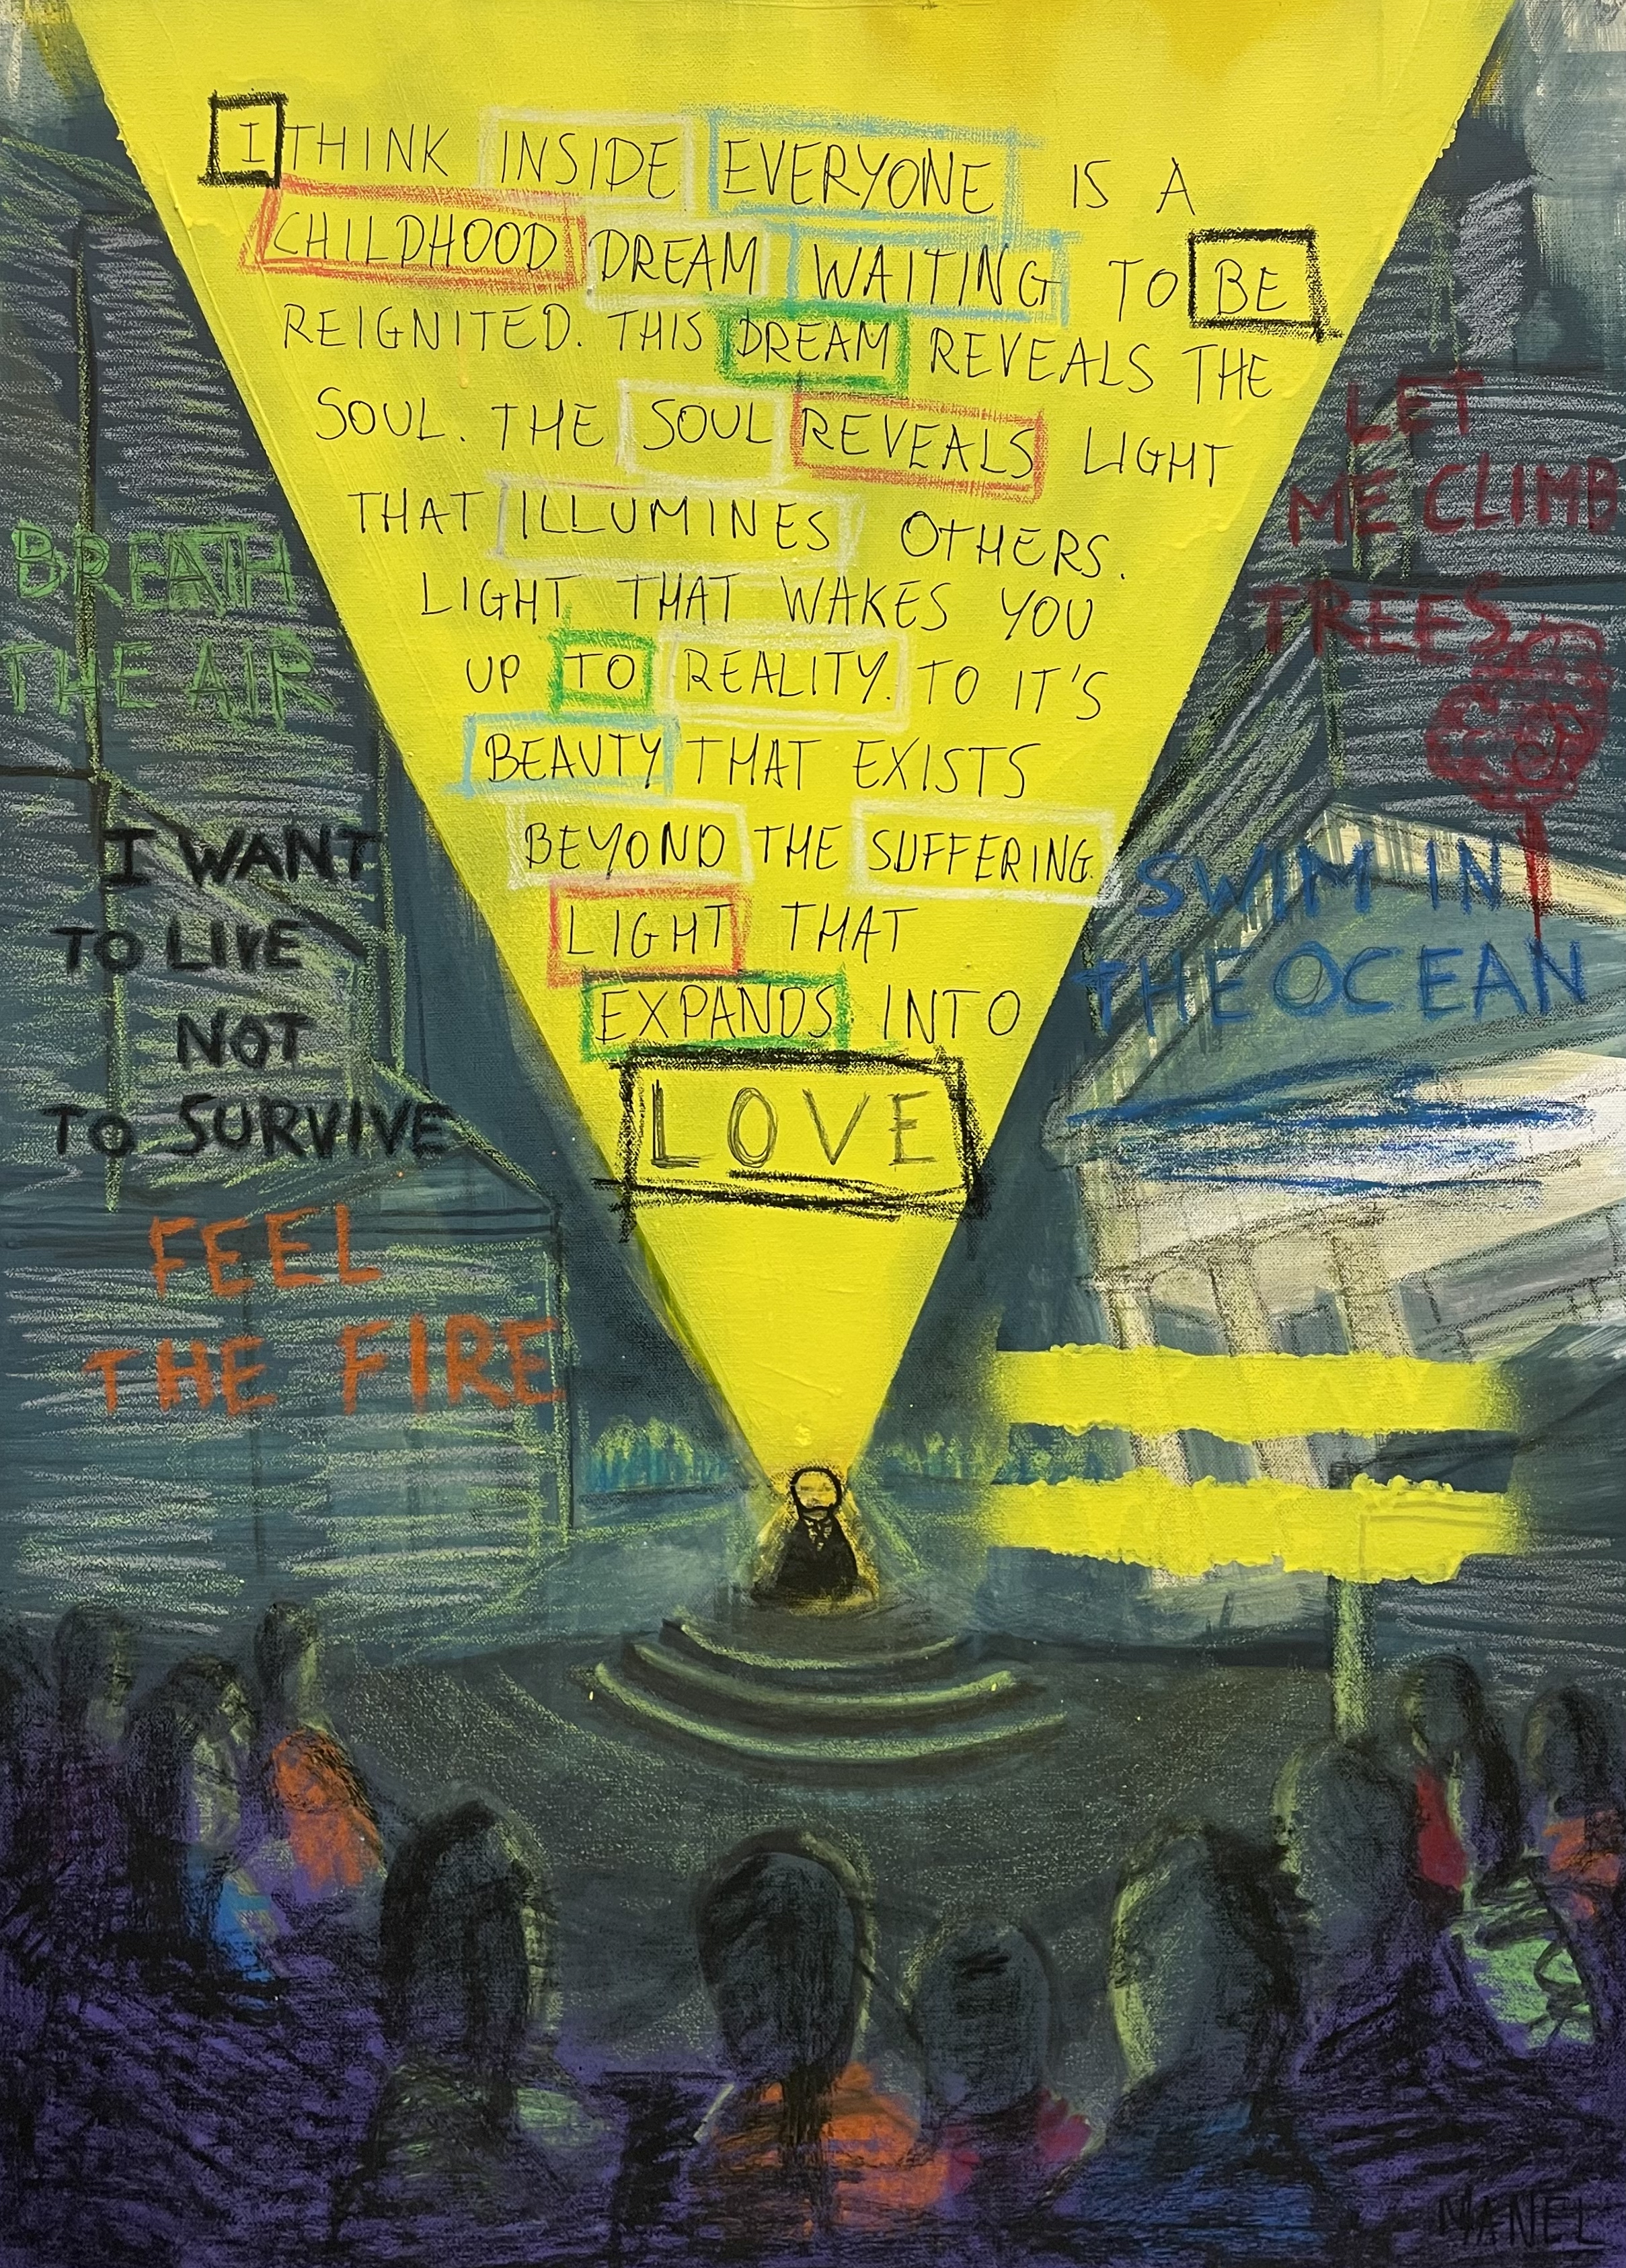 I THINK INSIDE EVERYONE IS A
CHILDHOOD DREAM WAITING TO BE
REIGNITED. THIS DREAM REVEALS THE
SOUL. THE SOUL REVEALS LIGHT
THAT ILLUMINES OTHERS.
LIGHT THAT WAKES YOU
UP TO REALITY. TO IT'S
BEAUTY THAT EXISTS
BEYOND THE SUFFERING.
LIGHT THAT
EXPANDS INTO
LOVE
BREATH
THE AIR
I WANT
TO LIVE
NOT
TO SURVIVE
FEEL
THE FIRE
LET
ME CLIMB
TREES
SWIM IN
THE OCEAN
MANEL